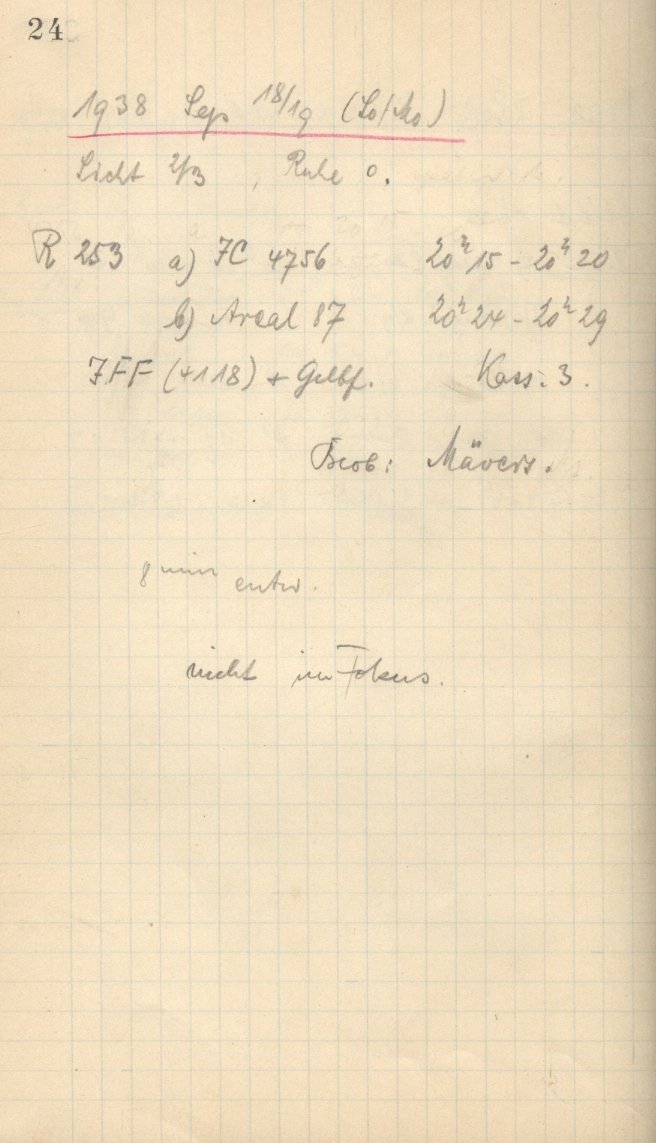 24
1938 Sep 18/19 (So/Mo)
Sicht 2/3, Ruhe 0.
R 253 a) IC 4756 20ʰ15 - 20ʰ20
b) Areal 87 20ʰ24 - 20ʰ29
IFF (+118) + Gelbf. Kass. 3.
Beob: Mävers.
8 min entw.
nicht im Fokus.